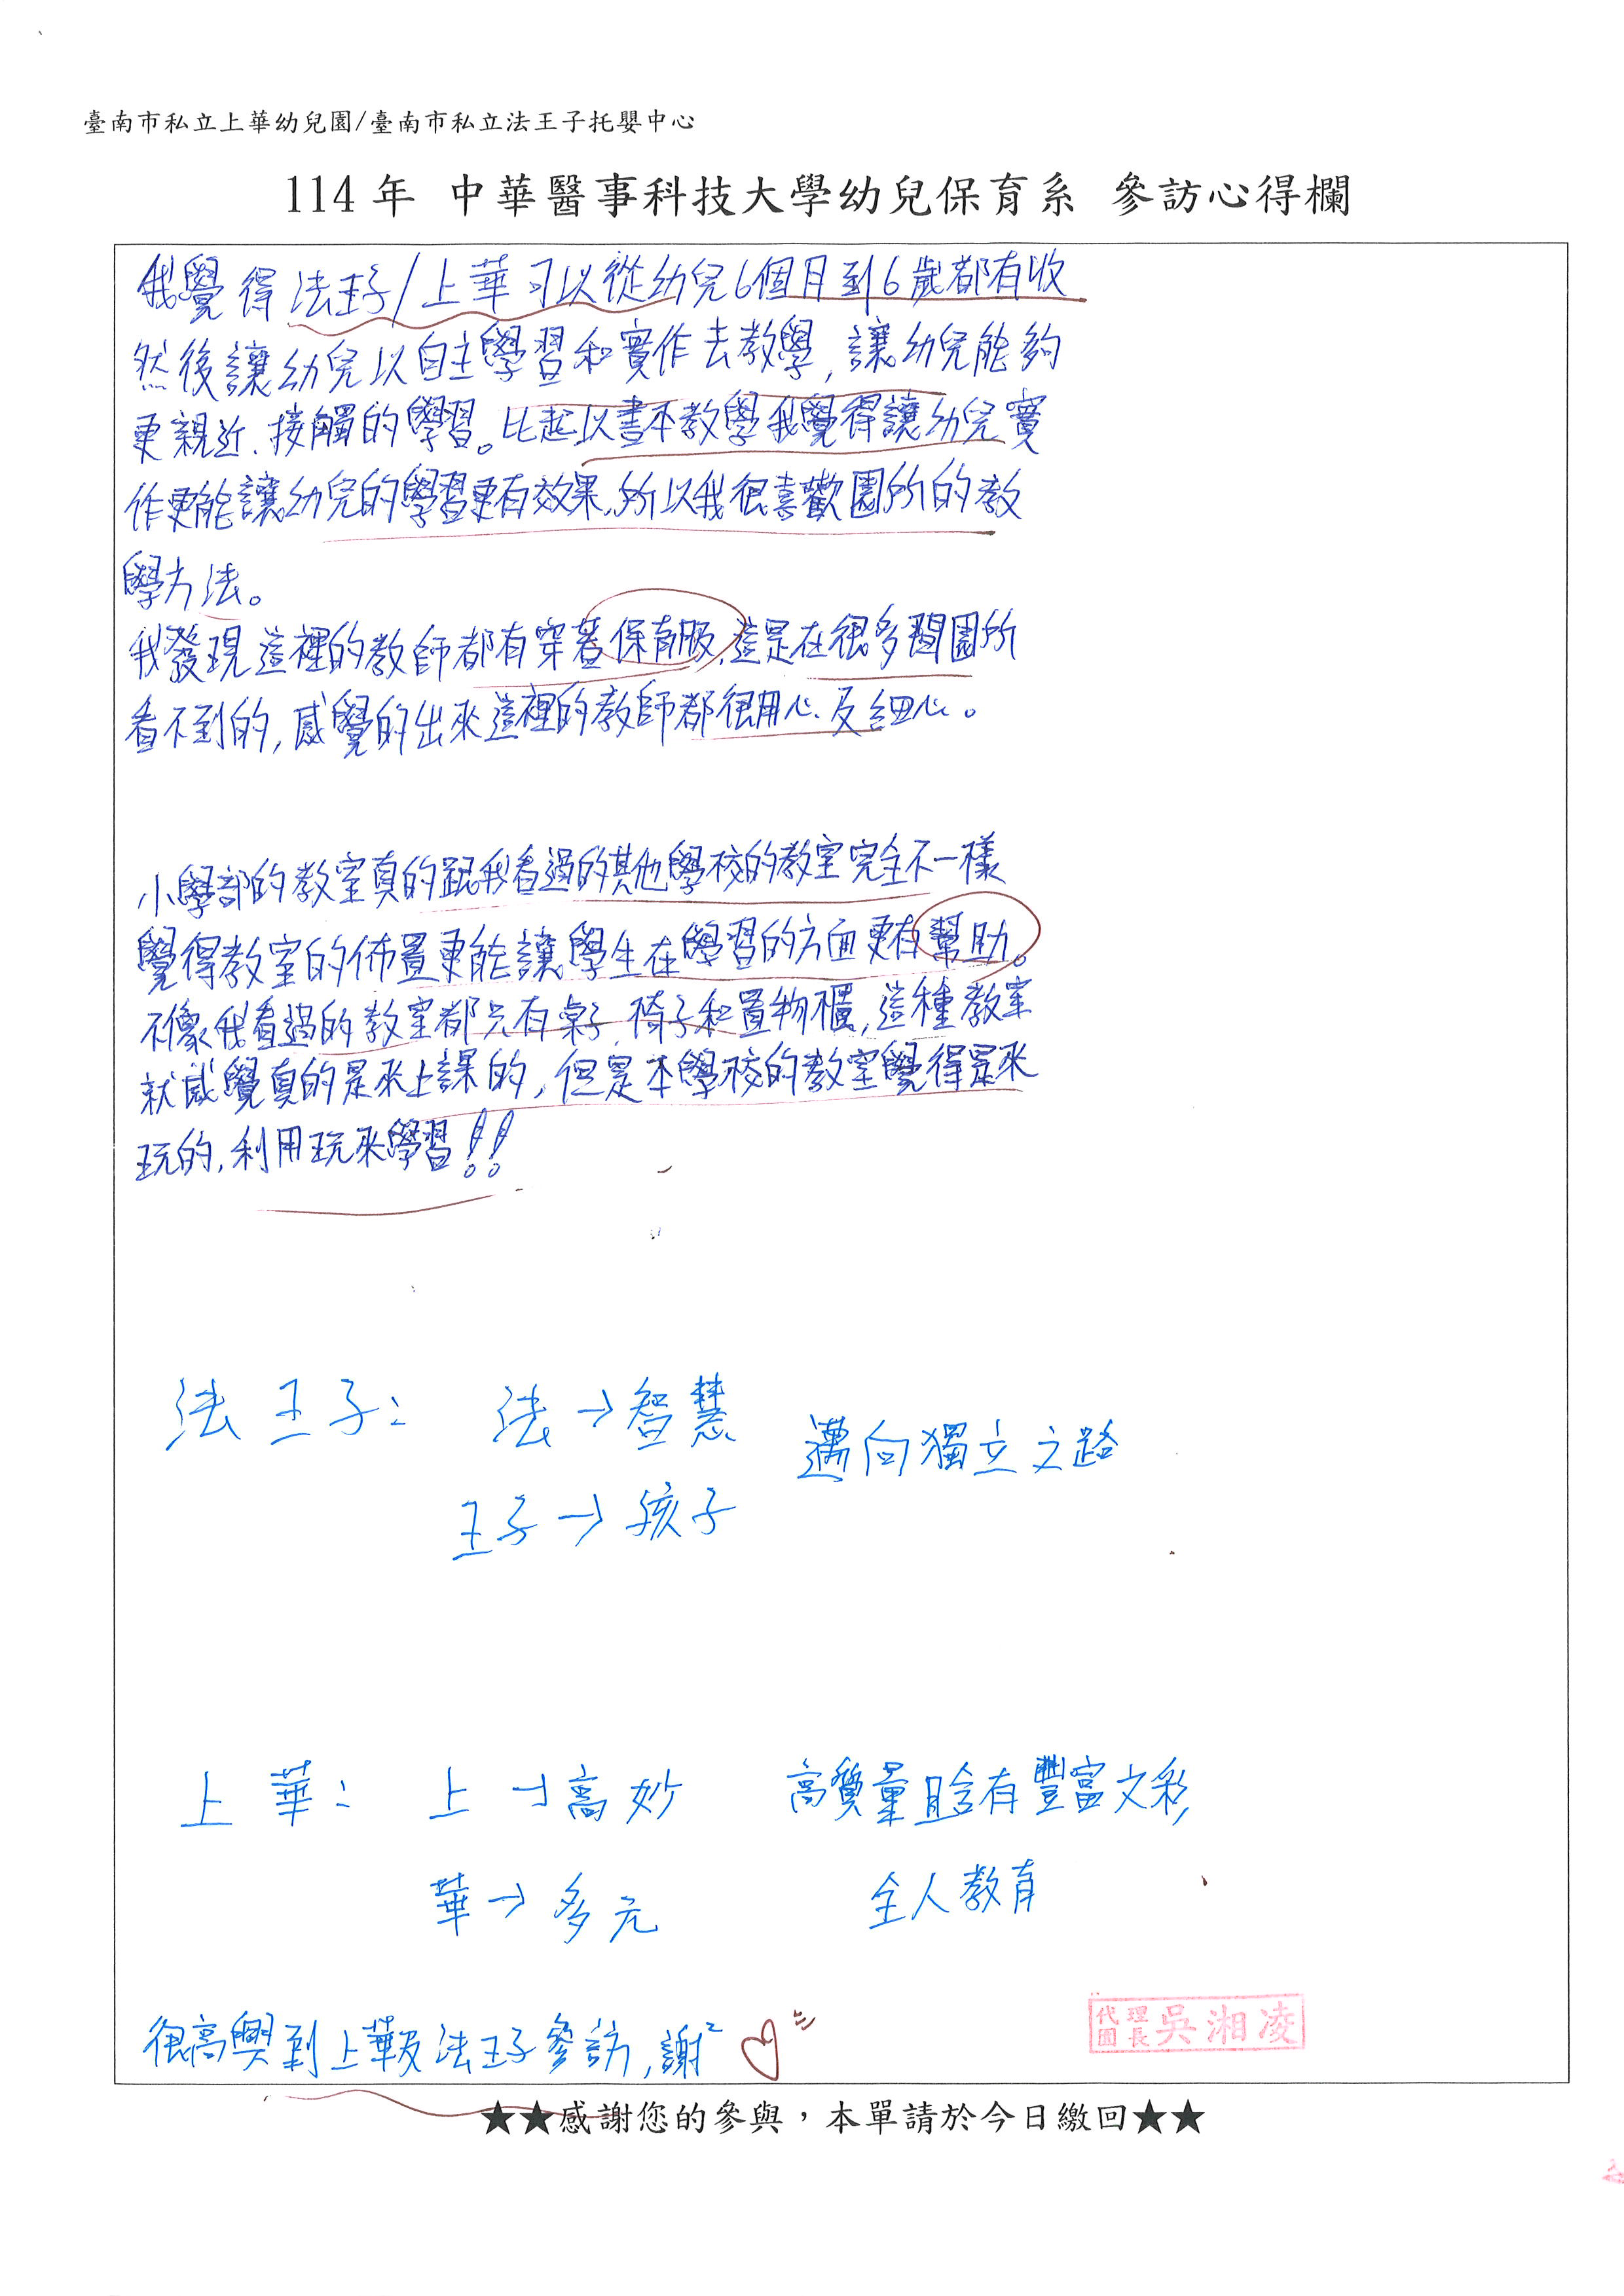 臺南市私立上華幼兒園/臺南市私立法王子托嬰中心
114年 中華醫事科技大學幼兒保育系 參訪心得欄
我覺得法王子/上華可以從幼兒6個月到6歲都有收
然後讓幼兒以自主學習和實作去教學,讓幼兒能夠
更親近、接觸的學習。比起以書本教學我覺得讓幼兒實
作更能讓幼兒的學習更有效果,所以我很喜歡園所的教
學方法。
我發現這裡的教師都有穿著保育服,這是在很多間園所
看不到的,感覺的出來這裡的教師都很用心、及細心。
小學部的教室真的跟我看過的其他學校的教室完全不一樣
覺得教室的佈置更能讓學生在學習的方面更有幫助。
不像我看過的教室都只有桌子、椅子和置物櫃,這種教室
就感覺真的是來上課的,但是本學校的教室覺得是來
玩的,利用玩來學習!!
法王子: 法→智慧 邁向獨立之路
王子→孩子
上華: 上→高妙 高質量且含有豐富文彩
華→多元 全人教育
代理園長 吳湘凌
很高興到上華及法王子參訪,謝²
★★感謝您的參與,本單請於今日繳回★★